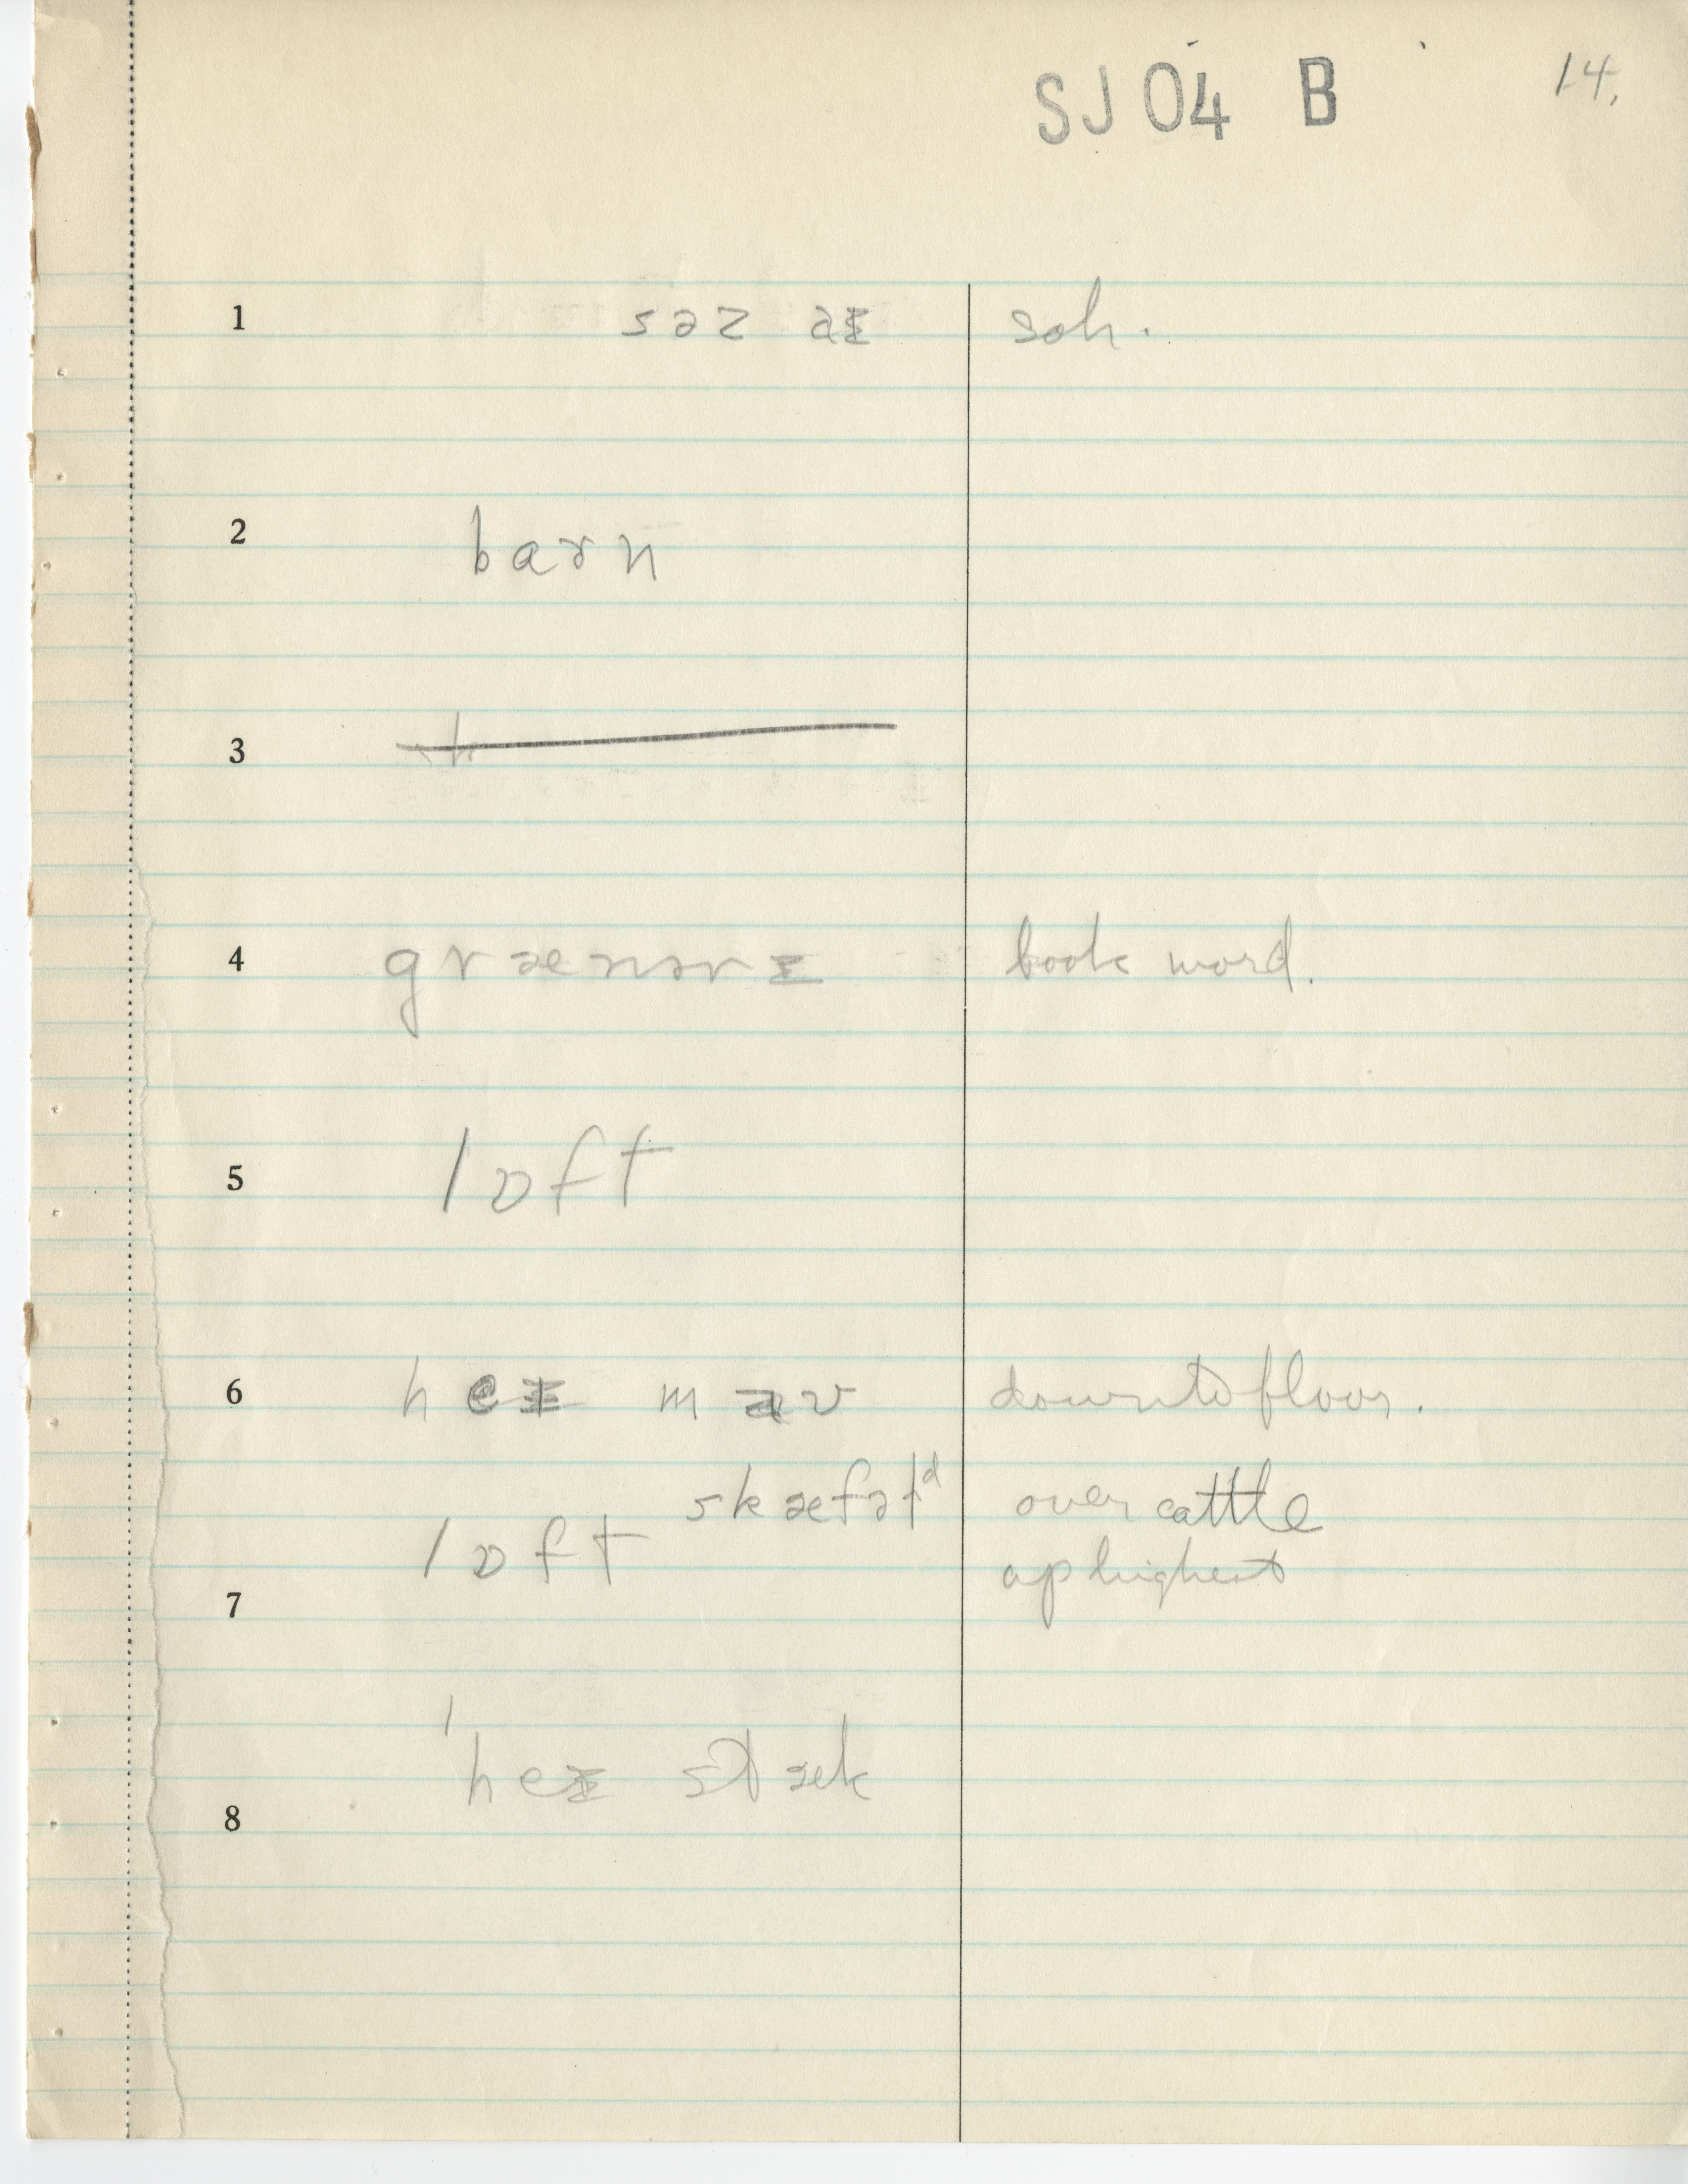 SJ 04 B 14.
1 səz aɪ soh.
2 barn
3
4 grænərɪ book word.
5 lɒft
6 heɪ maʊ down to floor.
skæfəlᵈ over cattle
lɒft up highest
7
heɪ stæk
8